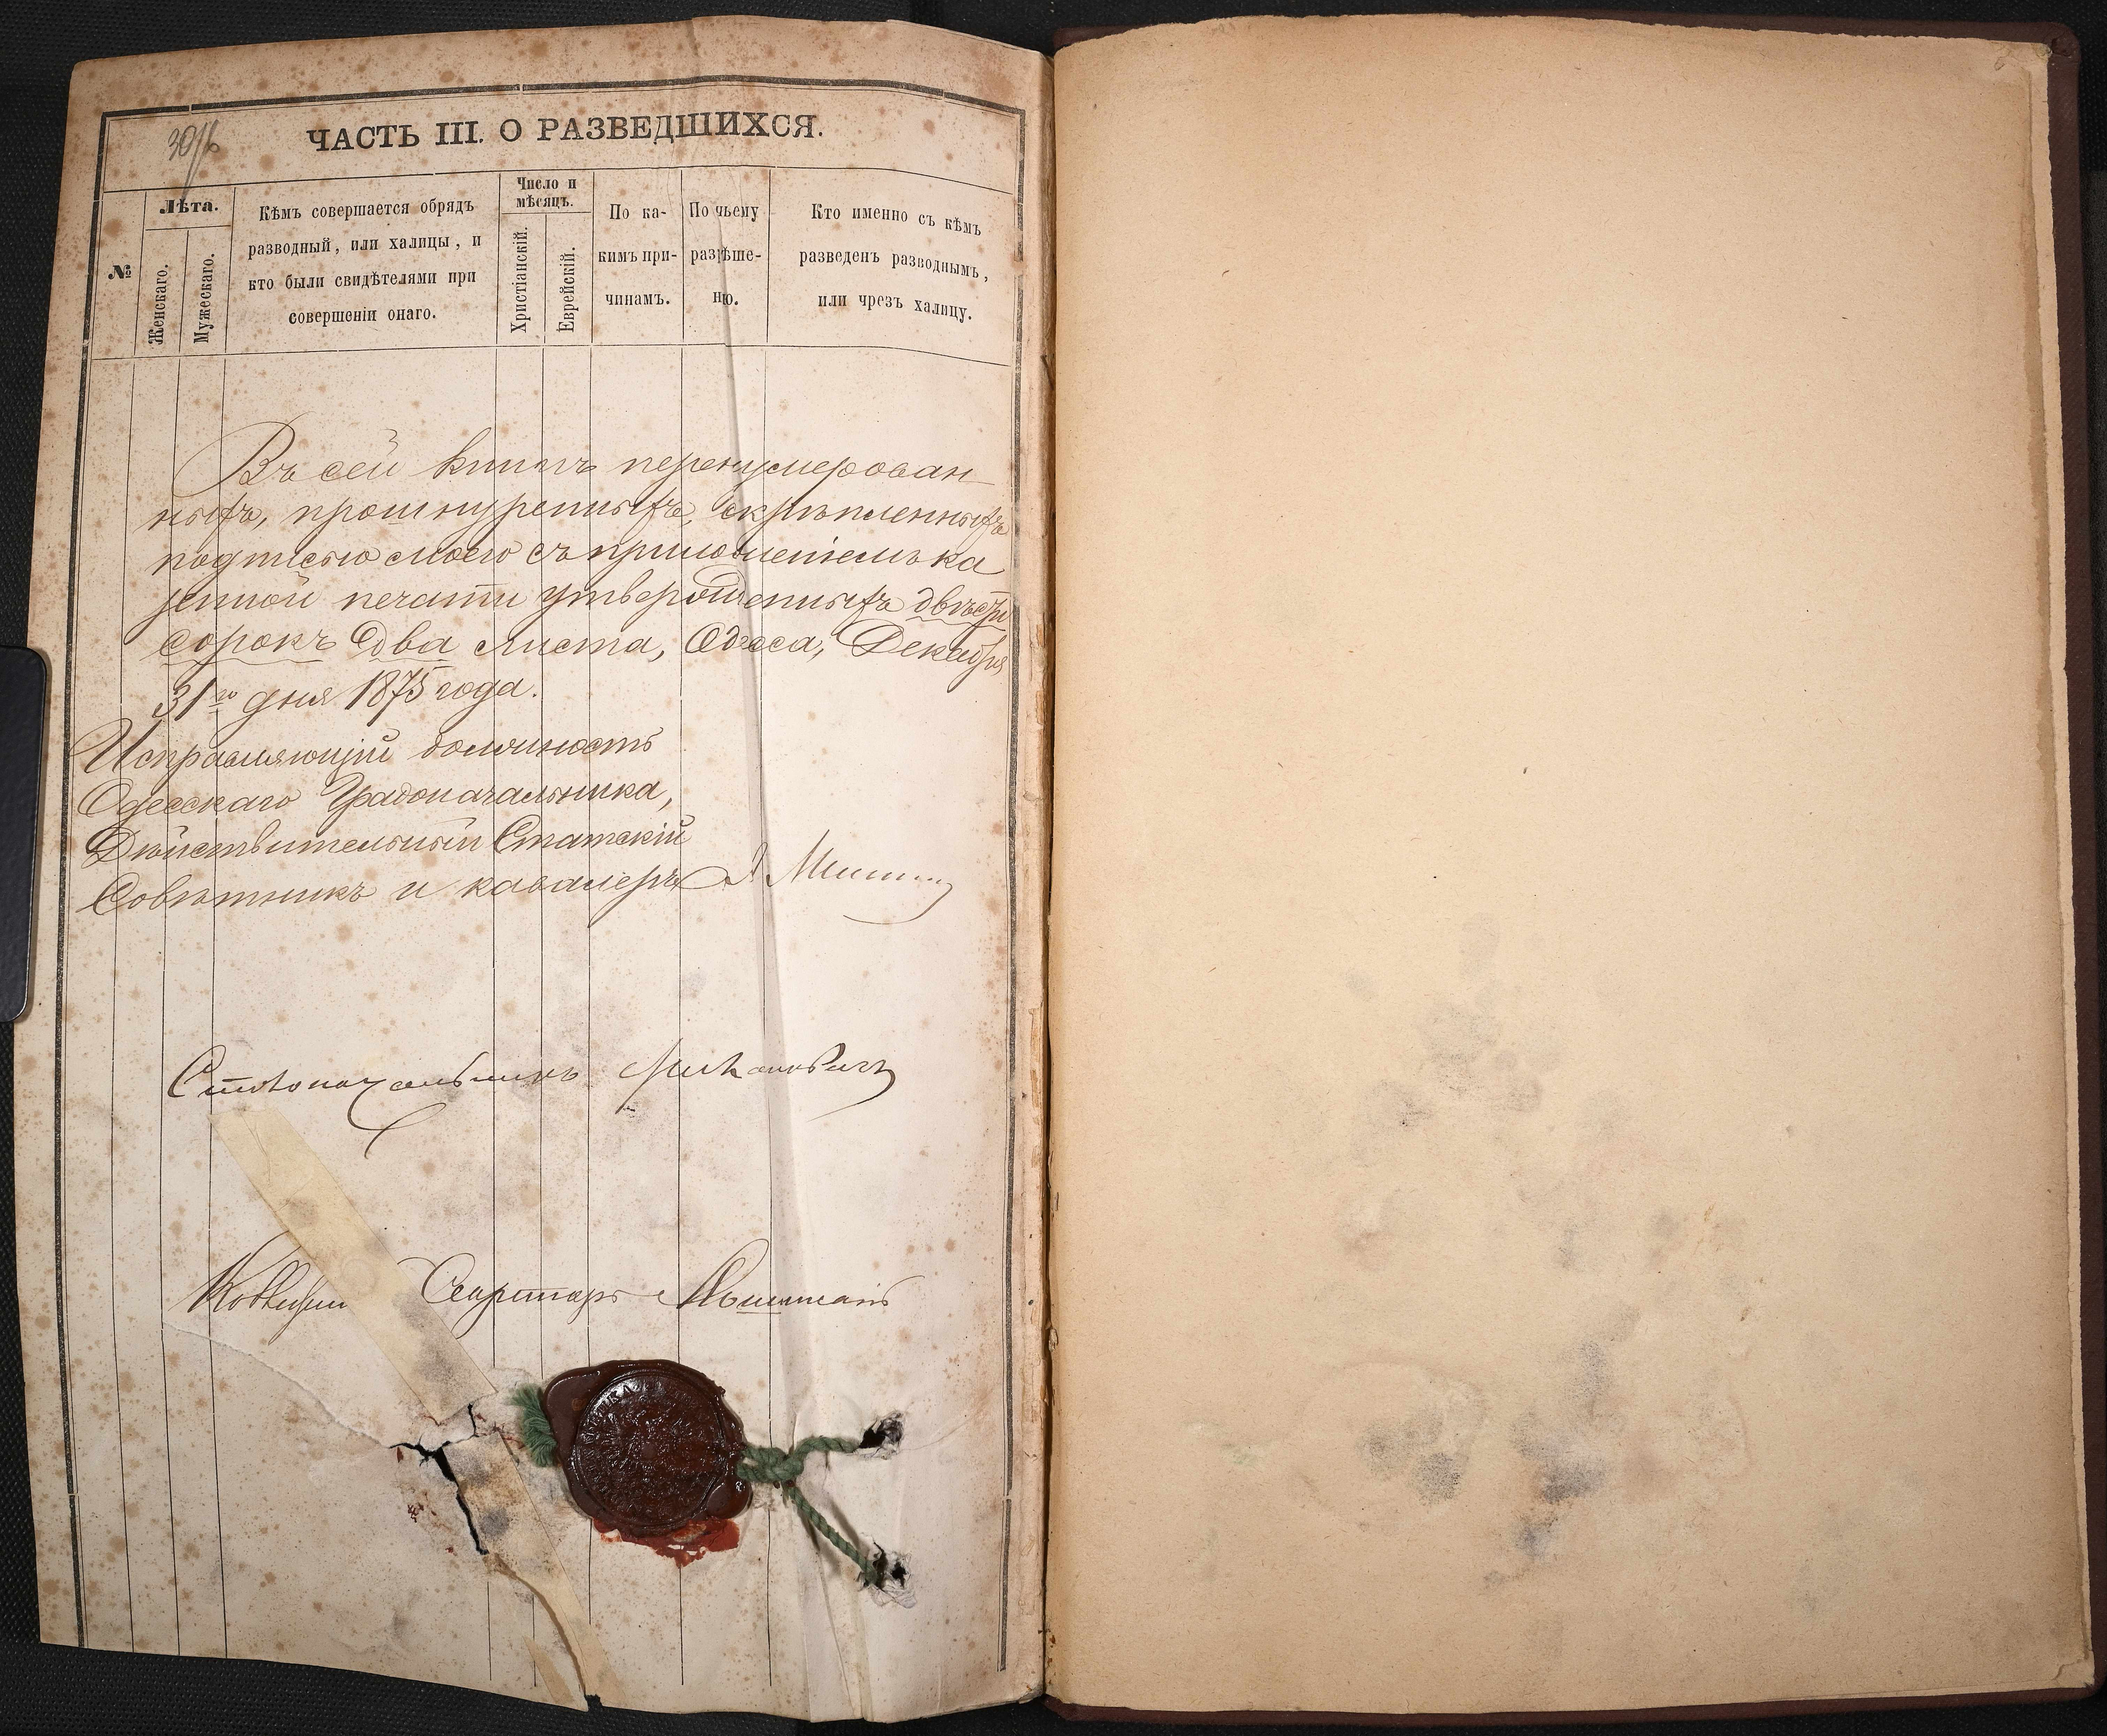 ЧАСТЬ III. О РАЗВЕДШИХСЯ.
№
Лѣта.
Женскаго.
Мужескаго.
Кѣмъ совершается обрядъ
разводный, или халицы, и
кто были свидѣтелями при
совершеніи онаго.
Число и
мѣсяцъ.
Христіанскій.
Еврейскій.
По ка-
кимъ при-
чинамъ.
По чьему
разрѣше-
нію.
Кто именно съ кѣмъ
разведенъ разводнымъ,
или чрезъ халицу.
Въ сей книгѣ перенумерован-
ныхъ, прошнуренныхъ, скрѣпленныхъ
подписью моею съ приложеніемъ ка
зенной печати утвержденныхъ двѣсти
сорокъ два листа, Одесса, Декабря
31го дня 1875 года.
Исправляющій должность
Одесскаго Градоначальника,
Дѣйствительный Статскій
Совѣтникъ и кавалеръ
Столоначальникъ
Секретарь